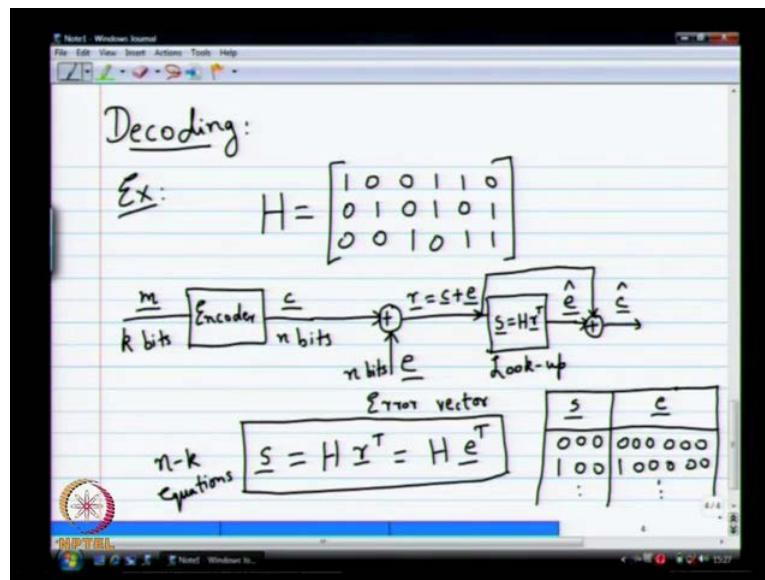 Note1 - Windows Journal
File Edit View Insert Actions Tools Help
Decoding:
Ex:
H = [1 0 0 1 1 0
0 1 0 1 0 1
0 0 1 0 1 1]
m
k bits
Encoder
c
n bits
+
r = c + e
s = H r^T
Look-up
ê
+
ĉ
n bits
e
Error vector
n-k
equations
s = H r^T = H e^T
s e
000 000 000
100 100000
⋮ ⋮
4/4
NPTEL
Note1 - Windows Jo...
15:27